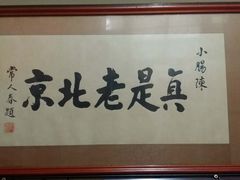 小腸陳
真是老北京
常人春題